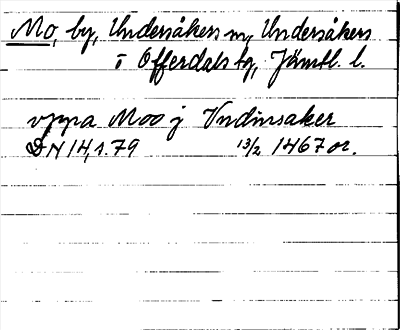 Mo, by, Undersåkers sn, Undersåkers
i Offerdals tg, Jämtl. l.
vppa Moo j Vndinsaker
DN 14, s. 79 13/2 1467 or.